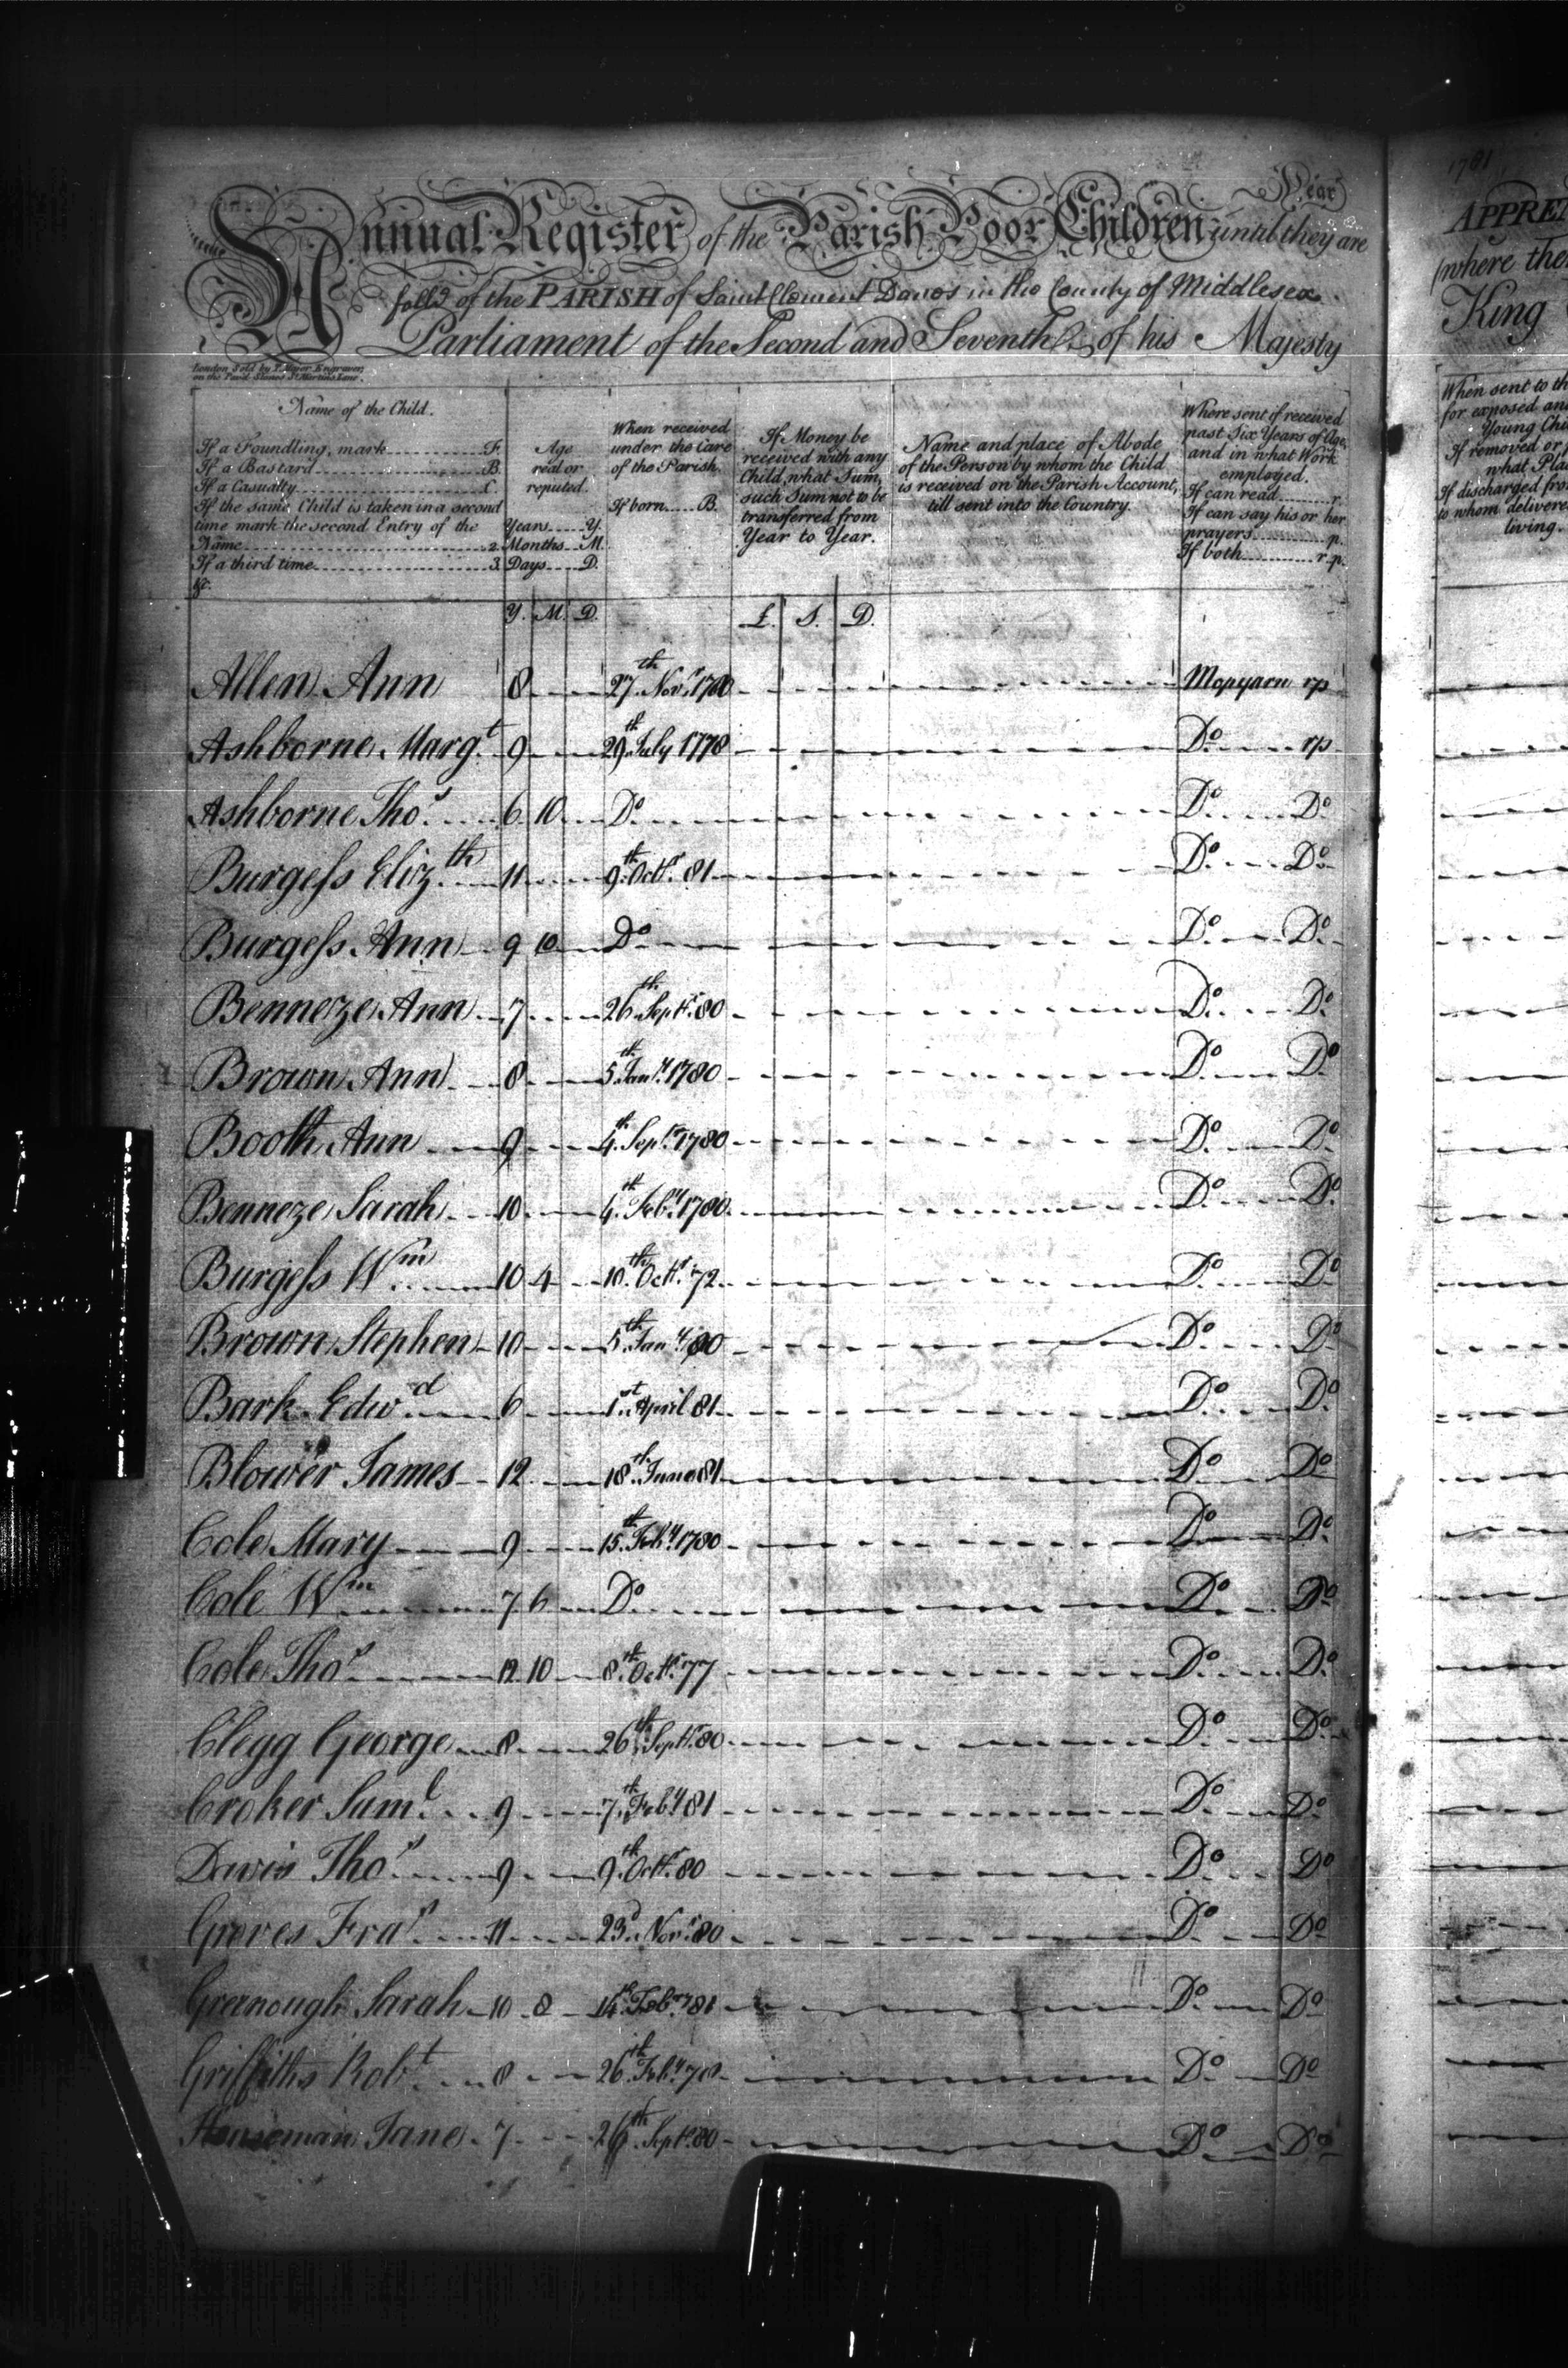 Year
Annual Register of the Parish Poor Children until they are
foll? of the PARISH of Saint Clement Danes in the County of Middlesex
Parliament of the Second and Seventh &c of his Majesty
London Sold by
Engraver
Name of the Child.
If a Foundling, mark F.
If a Bastard B.
If a Casualty C.
If the same Child is taken in a second
time mark the second Entry of the
Name 2
If a third time 3.
&c.
Age
real or
reputed.
Years Y.
Months M.
Days D.
When received
under the Care
of the Parish.
If born B.
If Money be
received with any
Child, what Sum,
such Sum not to be
transferred from
Year to Year.
Name and place of Abode
of the Person by whom the Child
is received on the Parish Account,
till sent into the Country.
Where sent if received
past Six Years of Age,
and in what Work
employed.
If can read r.
If can say his or her
prayers p.
If both r.p.
Y. M. D. £. S. D.
Allen Ann 8 27th Novr 1780 Mopyarn rp
Ashborne Margt 9 29th July 1778 Do rp
Ashborne Thos 6 10 Do Do Do
Burgess Elizth 11 9th Octr 81 Do Do
Burgess Ann 9 10 Do Do Do
Benneze Ann 7 26th Septr 80 Do Do
Brown Ann 8 5th Jany 1780 Do Do
Booth Ann 9 4th Septr 1780 Do Do
Benneze Sarah 10 4th Feby 1780 Do Do
Burgess Wm 10 4 10th Octr 72 Do Do
Brown Stephen 10 5th Jany 80 Do Do
Bark Edwd 6 1st April 81 Do Do
Blower James 12 18th June 81 Do Do
Cole Mary 9 15th Feby 1780 Do Do
Cole Wm 7 6 Do Do Do
Cole Thos 12 10 8th Octr 77 Do Do
Clegg George 8 26th Septr 80 Do Do
Croker Saml 9 7th Feby 81 Do Do
Davis Thos 9 9th Octr 80 Do Do
Groves Fras 11 23d Novr 80 Do Do
Greenough Sarah 10 8 14th Feby 81 Do Do
Griffiths Robt 8 26th Feby 78 Do Do
Jane 7 26th Septr 80 Do Do
1781
APPRE
(where the
King
When sent to th
for exposed an
Young Chi
If removed or,
what Pla
If discharged fro
to whom delivere
living.